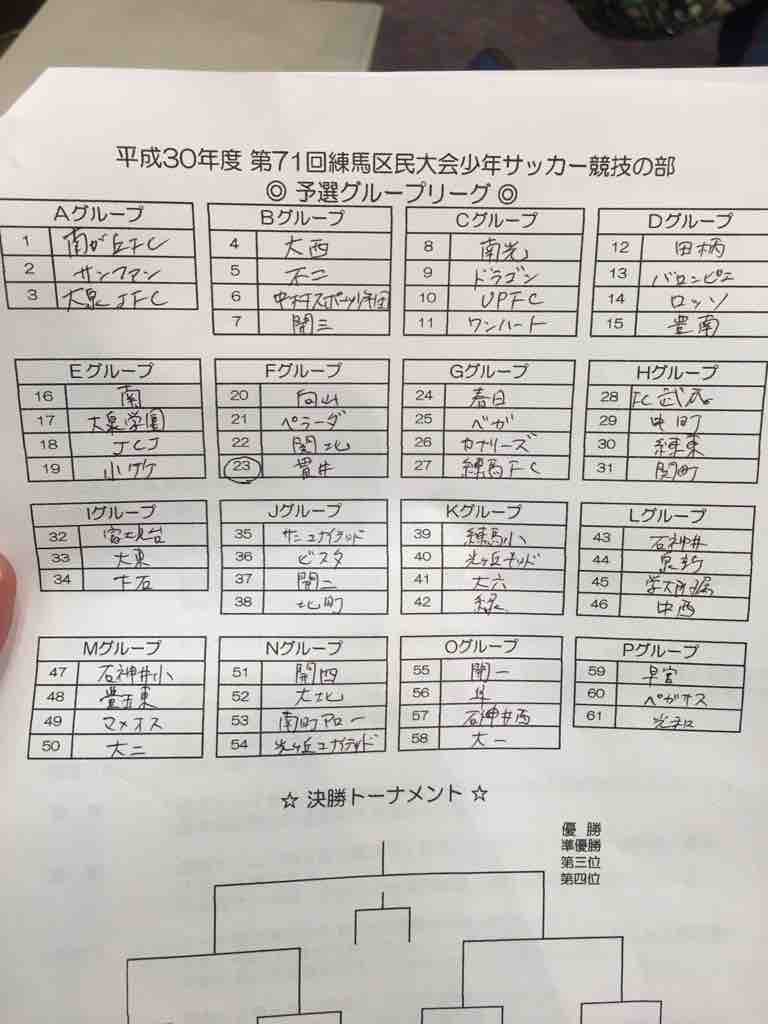 平成30年度 第71回練馬区民大会少年サッカー競技の部
◎ 予選グループリーグ ◎
Aグループ
1 南が丘FC
2 サンファン
3 大泉JFC
Bグループ
4 大西
5 不二
6 中村スポーツ少年団
7 開三
Cグループ
8 南光
9 ドラゴン
10 UPFC
11 ワンハート
Dグループ
12 田柄
13 バロンピエ
14 ロッソ
15 豊南
Eグループ
16 南
17 大泉学園
18 JCJ
19 小ザケ
Fグループ
20 向山
21 ペラーダ
22 関北
23 貫井
Gグループ
24 春日
25 ベガ
26 カナリーズ
27 練馬FC
Hグループ
28 FC武蔵
29 中町
30 練東
31 関町
Iグループ
32 富士見台
33 大東
34 下石
Jグループ
35 サンユナイテッド
36 ビスタ
37 開二
38 北町
Kグループ
39 練馬小
40 光が丘キッド
41 大六
42 緑
Lグループ
43 石神井
44 泉新
45 学大附属
46 中西
Mグループ
47 石神井小
48 豊玉東
49 マメオス
50 大二
Nグループ
51 開四
52 大北
53 南町アロー
54 光ヶ丘ユナイテッド
Oグループ
55 開一
56
57 石神井西
58 大一
Pグループ
59 早宮
60 ペガサス
61 光和
☆ 決勝トーナメント ☆
優勝
準優勝
第三位
第四位